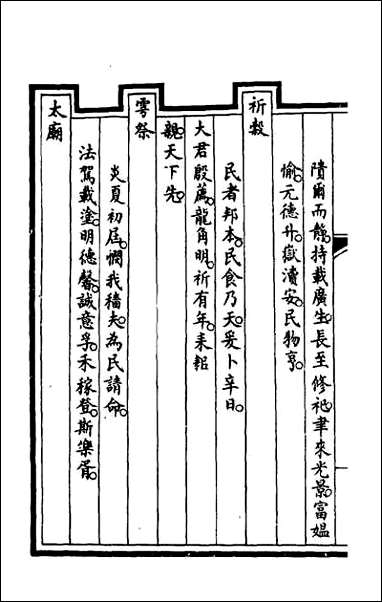 隤爾而靜。持載廣生。長至修祀。聿來光景。富媪
愉。元德升。嶽瀆安。民物亨。
祈穀
民者邦本。民食乃天。爰卜辛日。
大君殷薦。龍角明。祈有年。耒耜
親。天下先。
雩祭
炎夏初屆。憫我穡夫。為民請命。
法駕載塗。明德馨。誠意孚。禾稼登。斯樂胥。
太廟